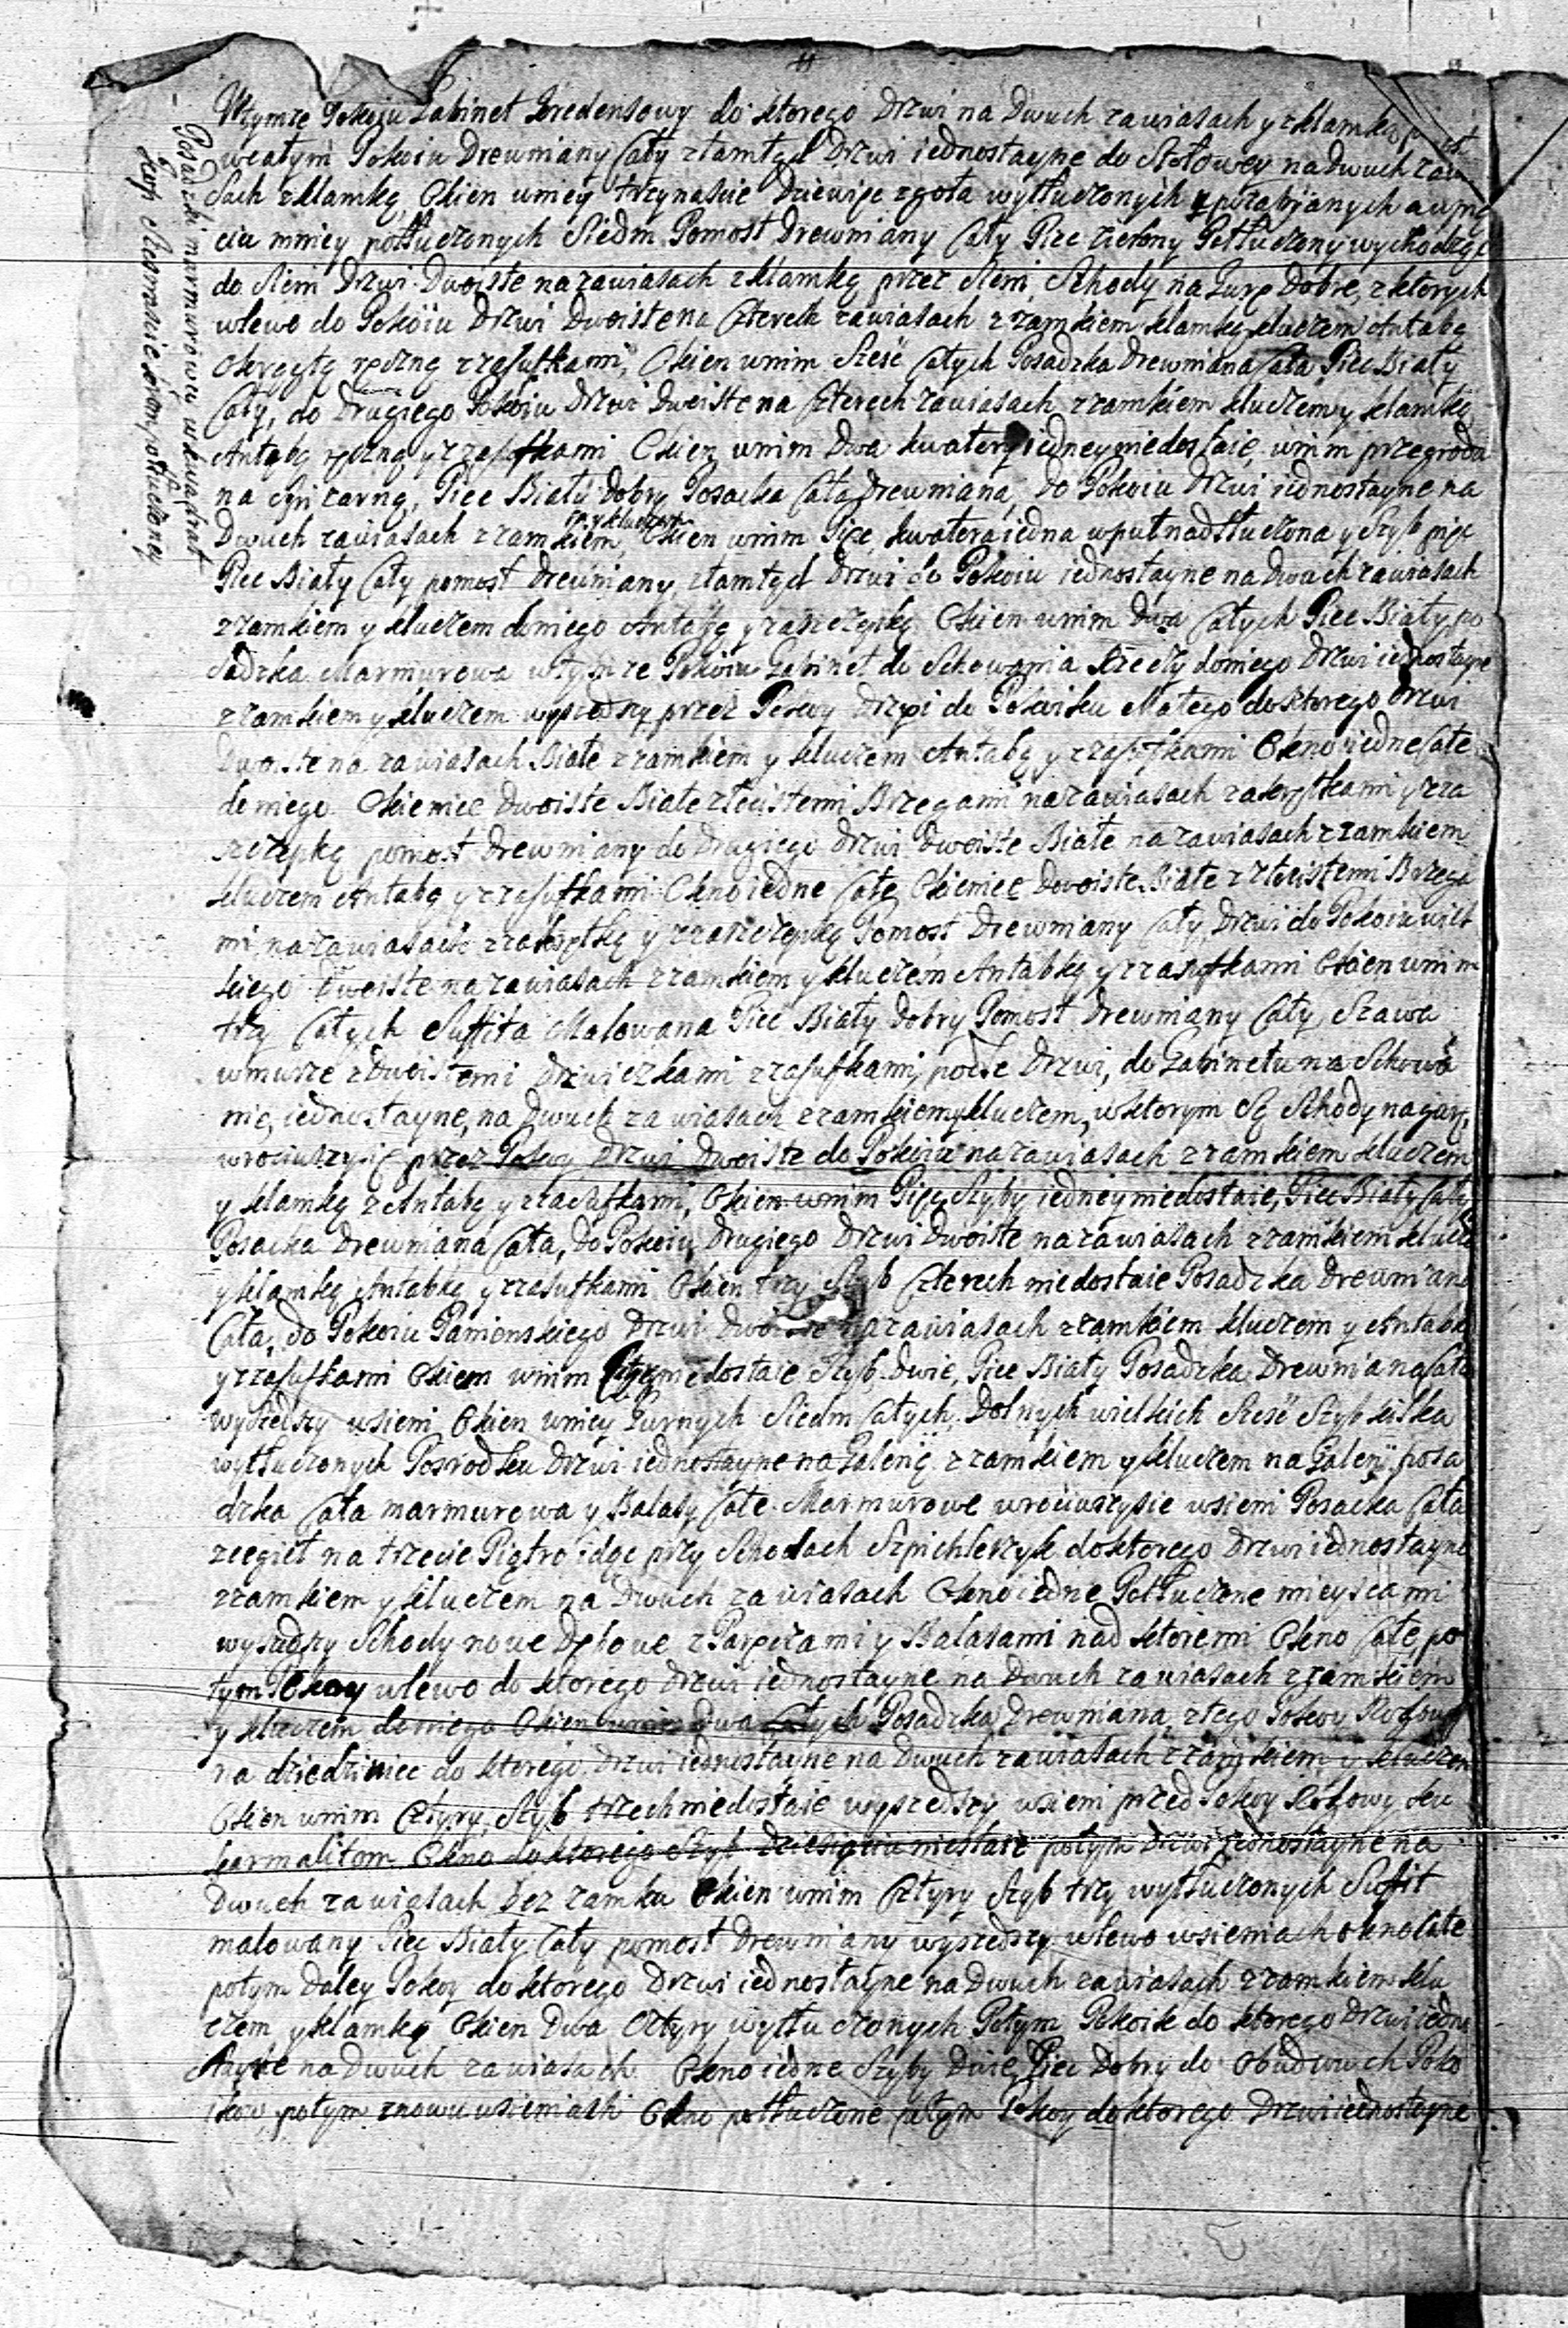 Wtymże Pokoiu Gabinet Kredensowy do ktorego Drzwi na Dwuch zawiasach y zklamką
wcałym Pokoiu Drewniany Cały ztamtąd Drzwi iednostayne do Stołowey na dwuch zawia
sach zklamką, Okien wniey trzynaście Dziewięc zgoła wytłuczonych y pozabijanych a wpię
ciu mniey potłuczonych Siedm Pomost Drewniany Cały Piec zielony Potłuczony wychodząc
do Sieni Drzwi Dwoiste na zawiasach zklamką przez Sieni, Schody na Gurę Dobre, z ktorych
wlewo do Pokoiu Drzwi Dwoiste na Czterech zawiasach zzamkiem klamką kluczem Antabą
okrągłą ręczną zzasufkami, Okien wnim Sześć Całych Posadzka Drewniana Cała Piec Biały
Cały, do Drugiego Pokoiu Drzwi Dwoiste na Czterech zawiasach zzamkiem kluczem y klamką
Antabą ręczną y zzasufkami Okien wnim Dwa kwatery iedney niedostaie, wnim przegroda
na Spizarną, Piec Biały Dobry Posacka Cała Drewniana, do Pokoiu Drzwi iednostayne na
Dwuch zawiasach zzamkiem, Okien wnim Pięc, kwatera iedna wpuł nadtłuczona y Szyb pięc
Piec Biały Cały pomost Drewniany, ztamtąd Drzwi do Pokoiu iednostayne na Dwuch zawiasach
zzamkiem y kluczem do niego Antabą y zaszczepką Okien wnim Dwa Całych Piec Biały, po
sadzka Marmurowa wtymże Pokoiu Gabinet do Schowania Rzeczy do niego Drzwi iednostayne
zzamkiem y kluczem wyszedszy przez Pokoy Drzwi do Pokoiku Małego do ktorego Drzwi
Dwoiste na zawiasach Białe zzamkiem y kluczem Antabą y zzasufkami Okno iedne Całe
do niego Okienice Dwoiste Białe złocistemi Brzegami na zawiasach zakrętkami y zza
szczepką pomost Drewniany do Drugiego Drzwi Dwoiste Białe na zawiasach zzamkiem
kluczem Antabą y zzasufkami Okno iedne Całe Okienice Dwoiste Białe zzłocistemi Brzega
mi na zawiasach zzakrętką y zzaszczepką Pomost Drewniany Cały, Drzwi do Pokoiu wiel
kiego Dwoiste na zawiasach zzamkiem y kluczem Antabką y zzasufkami Okien wnim
trzy Całych Suffita Malowana Piec Biały Dobry Pomost Drewniany Cały, Szawa
wmurze zDwoistemi Drzwiczkami zzasufkami, podle Drzwi, do Gabinetu na Schowa
nie, iednostayne, na Dwuch zawiasach zzamkiem y kluczem, wktorym Są Schody na gurę,
wrociwszysię przez Pokoy Drzwi Dwoiste do Pokoiu na zawiasach zzamkiem kluczem
y klamką zAntabą y zzasufkami, Okien wnim Pięc Szyby iedney niedostaie, Piec Biały Cały
Posacka Drewniana Cała, do Pokoiu Drugiego Drzwi Dwoiste na zawiasach zzamkiem klucze
y klamką Antabką y zzasufkami Okien trzy Szyb Czterech niedostaie Posadzka Drewniana
Cała, do Pokoiu Panienskiego Drzwi Dwoiste na zawiasach zzamkiem kluczem y Antabą
y zzasufkami Okien wnim niedostaie Szyb Dwie, Piec Biały Posadzka Drewniana Cała
wyszedszy wsieni Okien wniey Gurnych Siedm Całych, Dolnych wielkich Sześć Szyb kilka
wytłuczonych Posrodku Drzwi iednostayne na Galerię zzamkiem y kluczem na Galerÿ posa
dzka Cała marmurowa y Balasy Całe Marmurowe wrociwszysie wsieni Posacka Cała
zcegieł na trzecie Piątro idąc przy Schodach Szpichlerzyk do ktorego Drzwi iednostayne
zzamkiem y kluczem na Dwuch zawiasach Okno iedne Potłuczone mieyscami
wyszedszy Schody nowe Dębowe zPoręczami y Balasami nad ktoremi Okno Całe, po
tym Pokoy wlewo do ktorego Drzwi iednostayne na Dwuch zawiasach zzamkiem
y kluczem do niego Okien wnim dwa Całych Posadzka Drewniana, ztego Pokoy Rogowy
na dziedziniec do ktorego Drzwi iednostayne na Dwuch zawiasach zzamkiem y kluczem
Okien wnim Cztyry, Szyb trzech niedostaie wyszedszy wsieni przed Pokoy Rogowy ku
karmalitom Okno do ktorego Szyb dziesięciu niestaie potym Drzwi iednostayne na
Dwuch zawiasach bez zamku Okien wnim Cztyry Szyb trzy wytłuczonych Sufit
malowany Piec Biały Cały pomost Drewniany wyszedszy wlewo wsieniach okno Całe
potym Daley Pokoy do ktorego Drzwi iednostayne na Dwuch zawiasach zzamkiem klu
czem y klamką Okien Dwa Cztyry wytłuczonych Potym Pokoik do ktorego Drzwi iedno
stayne na Dwuch zawiasach Okno iedne Szyby Dwie, Piec Dobry do Obudwuch Poko
ikow, potym znowu wsieniach Okno potłuczone, potym Pokoy do ktorego Drzwi iednostayne
Posadzki marmurowey wkwadrat
potłuczoney